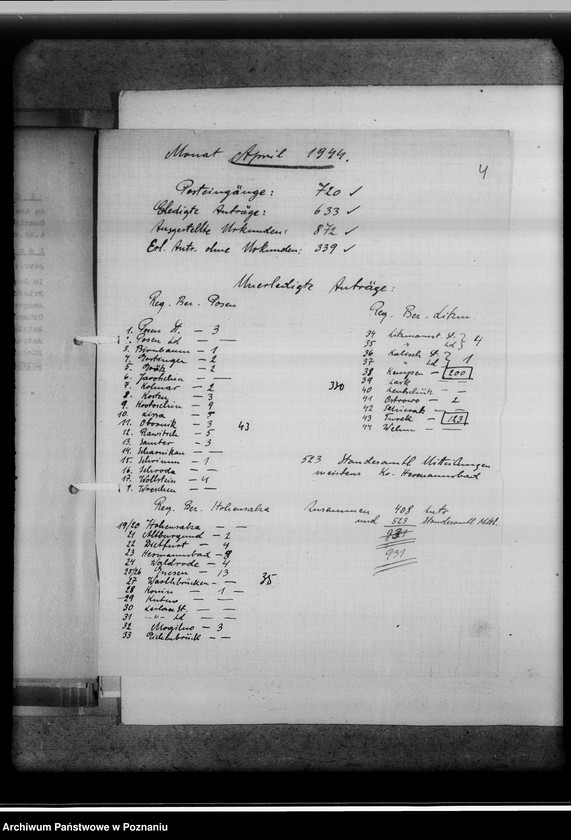 4
Monat April 1944.
Posteingänge: 720 ✓
Erledigte Anträge: 633 ✓
Ausgestellte Urkunden: 872 ✓
Erl. Antr. ohne Urkunden: 339 ✓
Unerledigte Anträge:
Reg. Bez. Posen
1. Posen St. — 3
2. Posen Ld — —
3. Birnbaum — 1
4. Gostingen — 2
5. Grätz — 2
6. Jarotschin — —
7. Kolmar — 2
8. Kosten — 3
9. Krotoschin — 9
10. Lissa —
11. Obornik — 3
12. Rawitsch — 5
13. Samter — 3
14. Scharnikau — —
15. Schrimm — 1
16. Schroda — —
17. Wollstein — 4
Wreschen — —
43
Reg. Bez. Hohensalza
19/20 Hohensalza — —
21 Altburgund — 2
22 Dietfurt — 4
23 Hermannsbad —
24 Waldrode — 4
25/26 Gnesen — 13
27 Warthbrücken — —
28 Konin — 1 —
29 Kutno — —
30 Leslau St. — —
31 — " — Ld — —
32 Mogilno — 3
33 Eichenbrück — —
35
Reg. Bez. Litzm.
34 Litzmannst St. } 4
35 " Ld }
36 Kalisch St. } 1
37 " Ld }
38 Kempen — 200
39 Lask — —
40 Lentschütz — —
41 Ostrowo — 2
42 Schieratz — —
43 Turek — 123
44 Welun — —
330
523 Standesamtl. Mitteilungen
meistens Kr. Hermannsbad
Zusammen 408 Antr.
und 523 Standesamtl. Mittl.
931
931
Archiwum Państwowe w Poznaniu